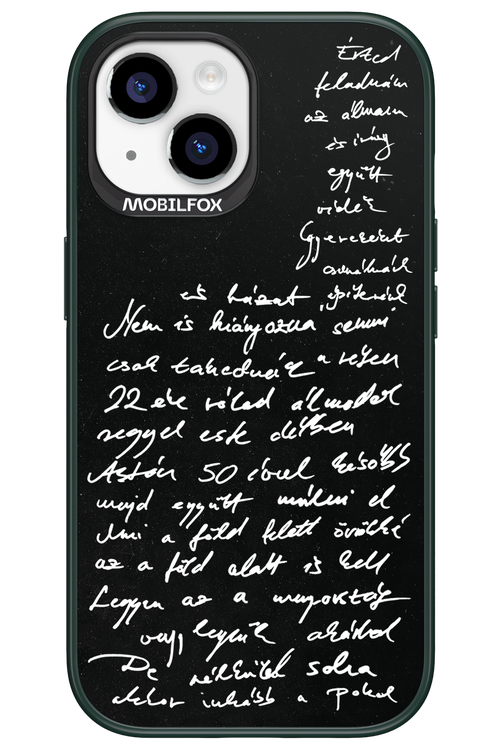 MOBILFOX
Érted
feladnám
az álmaim
és így
együtt
Gyerekeket
csinálnánk
és házat építenénk
Nem is hiányozna semmi
csak takednálz a vészen
22 éve rólad álmodok
reggel este délben
Aztán 50 évvel később
majd együtt múlni el
Ami a föld felett örökké
az a föld alatt is kell
Legyen az a mennyország
vagy legyünk akárhol
De nélküled soha
akkor inkább a pokol